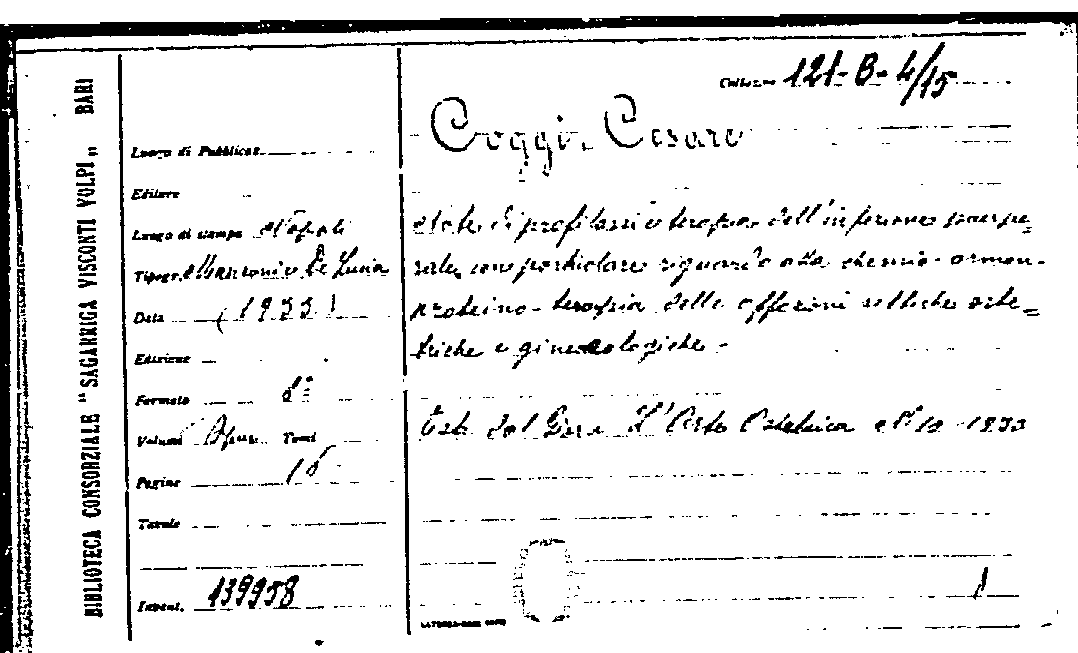 BIBLIOTECA CONSORZIALE "SAGARRIGA VISCONTI VOLPI„ BARI
Collocaz. 121-B-4/15
Coggi, Cesare
Luogo di Pubblicaz.
Editore
Luogo di stampa Napoli
Tipogr. Manzoni e De Lucia
Data (1933)
Edizione
Formato 8°
Volumi Opus. Tomi
Pagine 16
Tavole
Invent. 139958
Note di profilassi e terapia dell'infezione puerpe=
rale, con particolare riguardo alla chemio-ormon-
proteino-terapia delle affezioni settiche oste=
triche e ginecologiche.
Estr. dal Giorn. L'Arte Ostetrica N. 10 1933
1